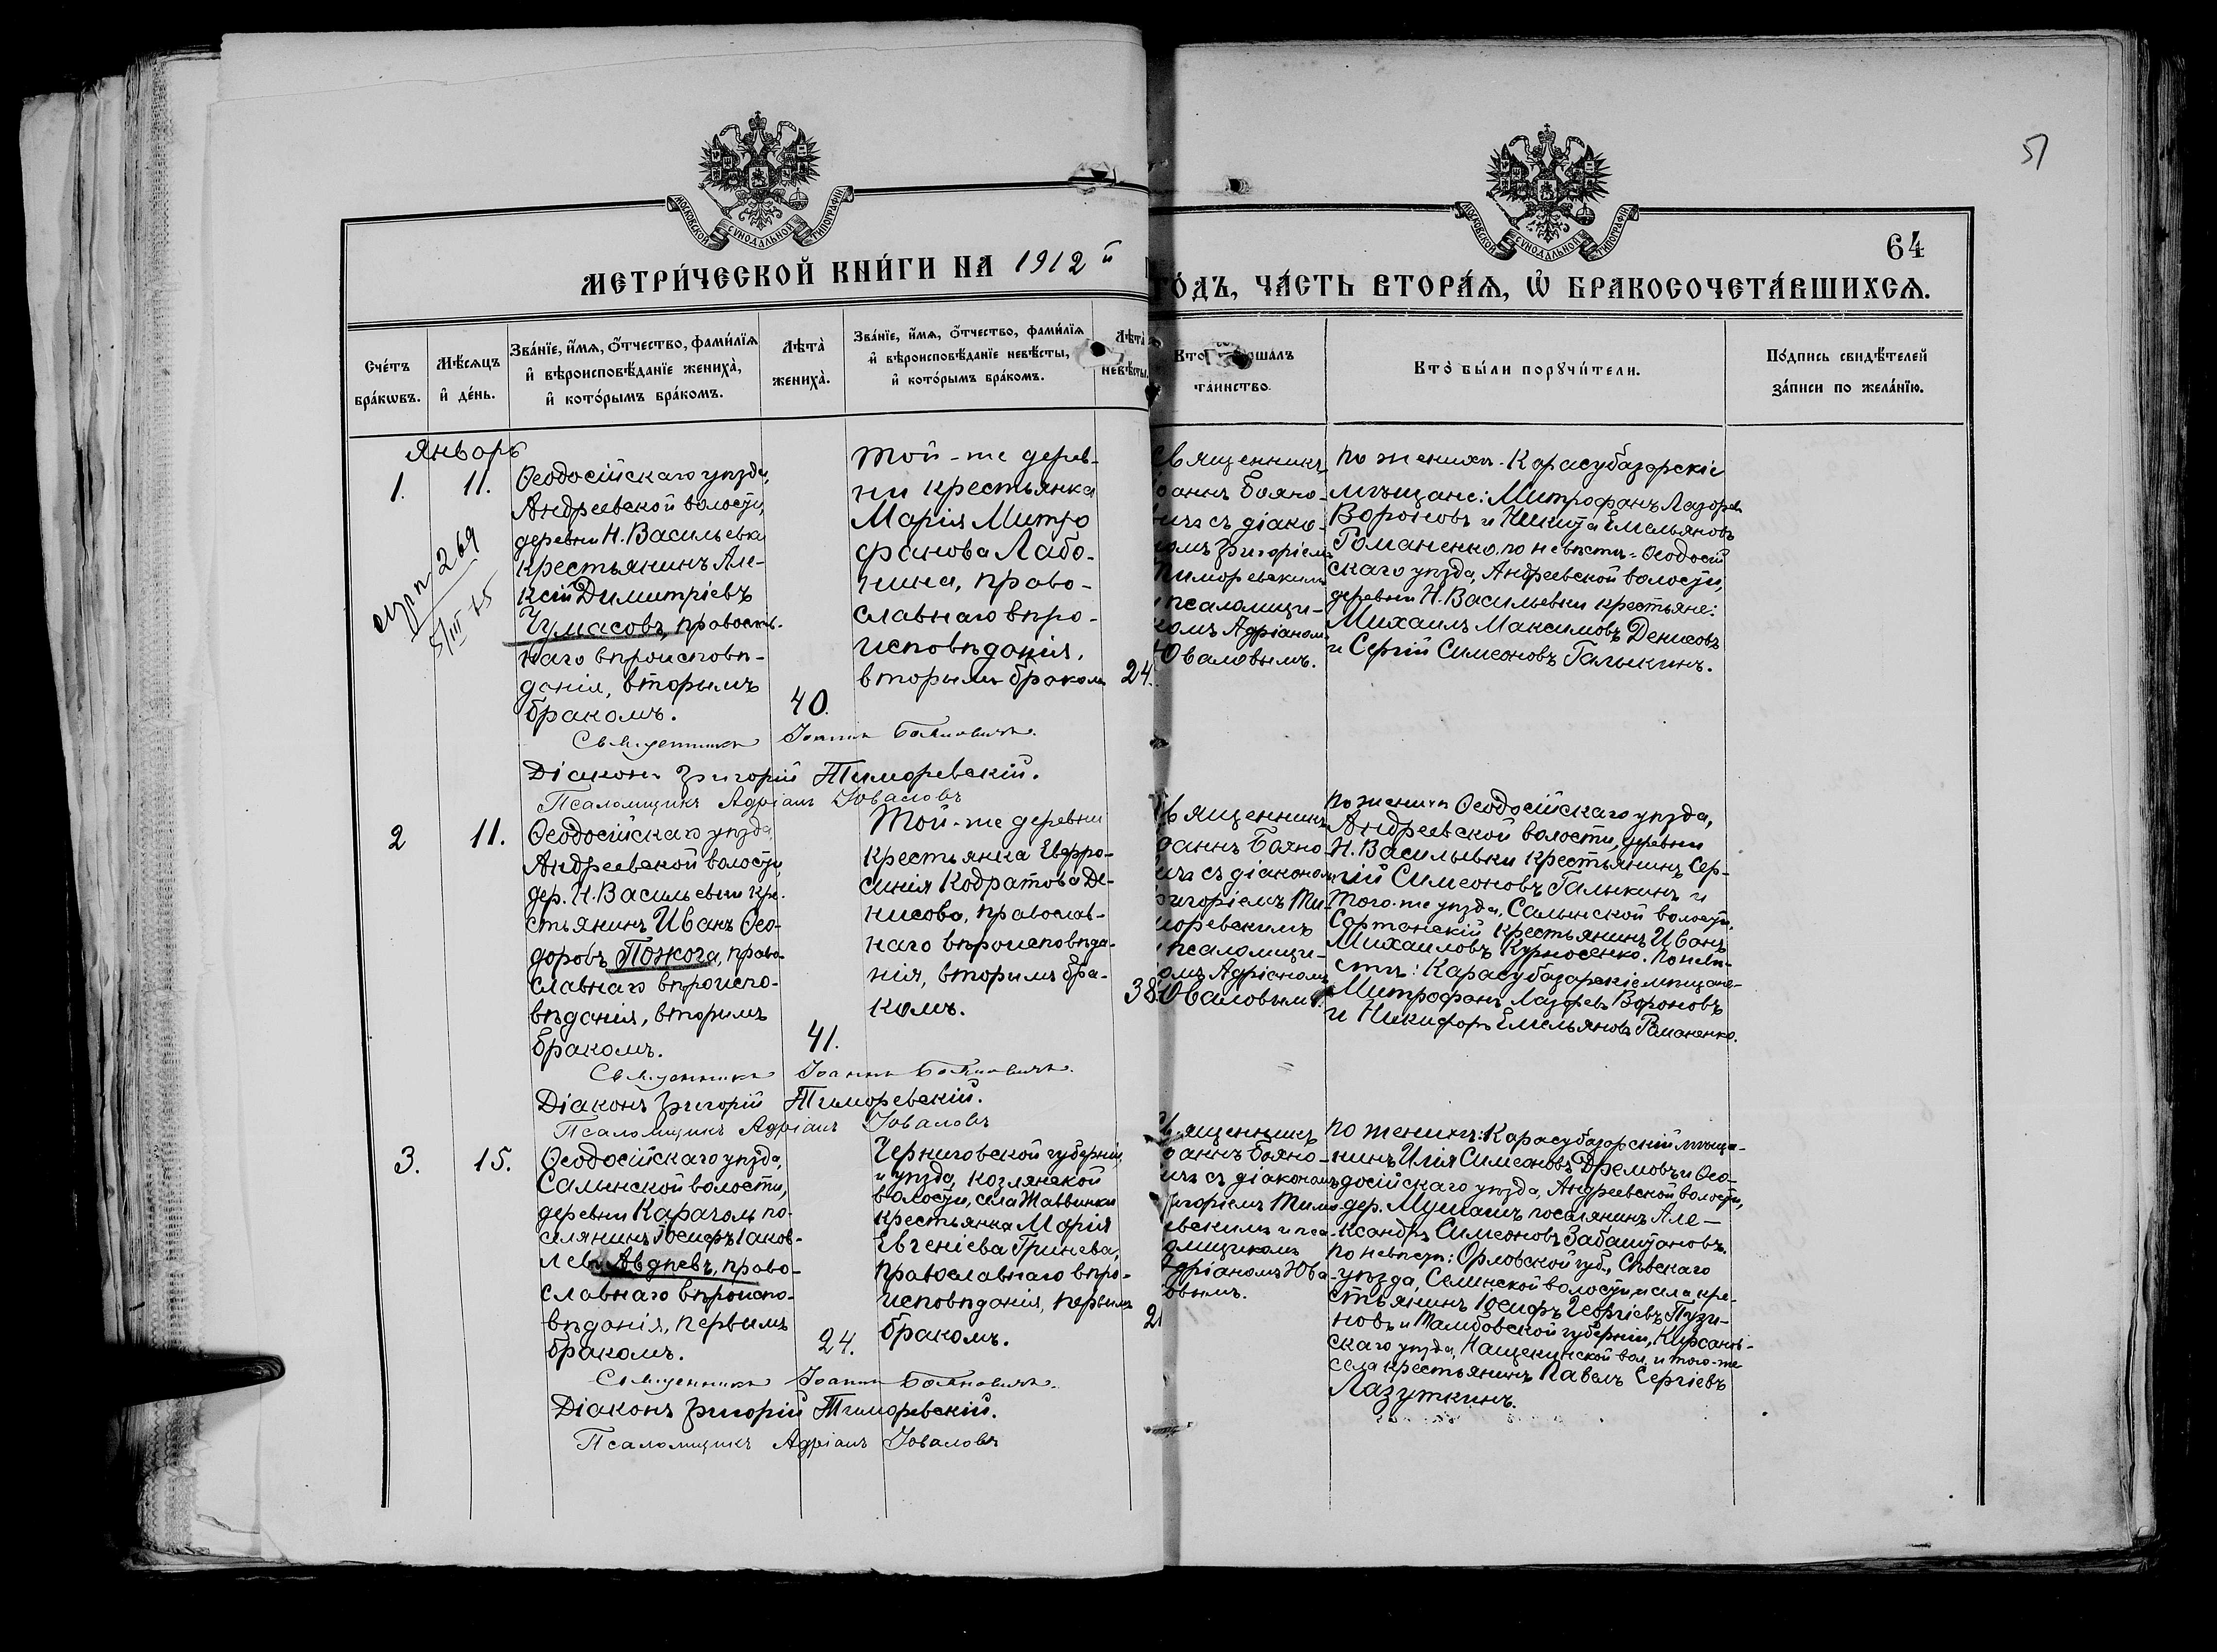 51
МОСКОВСКОЙ СУНОДАЛЬНОЙ ТИПОГРАФІИ
МОСКОВСКОЙ СУНОДАЛЬНОЙ ТИПОГРАФІИ
64
МЕТРИ́ЧЕСКОЙ КНИ́ГИ НА 1912 й
ГО́ДЪ, ЧА́СТЬ ВТОРА́Ѧ, Ѡ҆ БРАКОСОЧЕТА́ВШИХСѦ.
Сче́тъ
бра́кѡвъ.
Мѣ́сѧцъ
и҆ де́нь.
Зва́нїе, и҆́мѧ, ѻ҆́тчество, фами́лїѧ
и҆ вѣроисповѣ́данїе жениха̀,
и҆ кото́рымъ бра́комъ.
Лѣта̀
жениха̀.
Зва́нїе, и҆́мѧ, ѻ҆́тчество, фами́лїѧ
и҆ вѣроисповѣ́данїе невѣ́сты,
и҆ кото́рымъ бра́комъ.
Лѣта̀
невѣ́сты.
Кто̀ ршалъ
та́инство.
Кто̀ бы́ли порꙋчи́тели.
По́дпись свидѣ́телей
за́писи по жела́нїю.
Январь
1.
11.
Ѳеодосійскаго уѣзда,
Андреевской волости,
деревни Н. Васильевки
крестьянинъ Але-
ксій Димитріевъ
Чумасовъ, правосл.
наго вѣроисповѣ-
данія, вторымъ
бракомъ.
40.
Той-же дерев-
ни крестьянка
Марія Митро
фанова Лабо-
нина, право-
славнаго вѣро-
исповѣданія,
вторымъ бракомъ
24.
священникъ
Іоаннъ Бояно-
вичъ съ діако-
номъ Григоріемъ
Тиморевскимъ
и псаломщи-
комъ Адріаномъ
Юваловымъ.
по женихѣ. Карасубазарскіе
мѣщане: Митрофанъ Лазаревъ
Вороновъ и Никита Емельяновъ
Романенко, по невѣстѣ: Ѳеодосій
скаго уѣзда, Андреевской волости,
деревни Н. Васильевки крестьяне:
Михаилъ Максимовъ Денисовъ
и Сергій Симеоновъ Галыкинъ.
269
5/III 75
Священникъ Іоаннъ Бояновичъ.
Діаконъ Григорій Тиморевскій.
Псаломщикъ Адріанъ Юваловъ
2
11.
Ѳеодосійскаго уѣзда
Андреевской волости,
дер. Н. Васильевки кре-
стьянинъ Иванъ Ѳео-
доровъ Пожога, право-
славнаго вѣроиспо-
вѣданія, вторымъ
бракомъ.
41.
Той-же деревни
крестьянка Евфро-
синія Кодратова Де-
нисова, православ-
наго вѣроисповѣда-
нія, вторымъ бра-
комъ.
38.
священникъ
Іоаннъ Бояно-
вичъ съ діакономъ
Григоріемъ Ти-
моревскимъ
и псаломщи-
комъ Адріаномъ
Юваловымъ.
по женихѣ Ѳеодосійскаго уѣзда,
Андреевской волости, деревни
Н. Васильевки крестьянинъ Сер-
гій Симеоновъ Галыкинъ и
того-же уѣзда, Салынской волости,
Сартанскій крестьянинъ Иванъ
Михаиловъ Курносенко. По невѣ-
стѣ: Карасубазарскіе мѣщане
Митрофанъ Лазаревъ Вороновъ
и Никифоръ Емельяновъ Романенко.
Священникъ Іоаннъ Бояновичъ.
Діаконъ Григорій Тиморевскій.
Псаломщикъ Адріанъ Юваловъ
3.
15.
Ѳеодосійскаго уѣзда,
Салынской волости,
деревни Карачоль по-
селянинъ Іосифъ Іаков-
левъ Авдѣевъ, право-
славнаго вѣроиспо-
вѣданія, первымъ
бракомъ.
24.
Черниговской губерніи
и уѣзда, Козлянской
волости, села Жаввинки
крестьянка Марія
Евгеніева Гринева,
православнаго вѣро-
исповѣданія, первымъ
бракомъ.
21
священникъ
Іоаннъ Бояно-
вичъ съ діакономъ
Григоріемъ Тимо-
ревскимъ и пса-
ломщикомъ
Адріаномъ Юва-
ловымъ.
по женихѣ: Карасубазарскій мѣща-
нинъ Илія Симеоновъ Дремовъ и Ѳео-
досійскаго уѣзда, Андреевской волости,
дер. Мушашъ поселянинъ Але-
ксандръ Симеоновъ Забаштановъ.
По невѣстѣ: Орловской губ., Сѣвскаго
уѣзда, Селинской волости и села кре-
стьянинъ Іосифъ Георгіевъ Пузи-
новъ и Тамбовской губерніи, Кирсанов-
скаго уѣзда, Нащекинской вол. и того-же
села крестьянинъ Павелъ Сергіевъ
Лазуткинъ.
Священникъ Іоаннъ Бояновичъ.
Діаконъ Григорій Тиморевскій.
Псаломщикъ Адріанъ Юваловъ